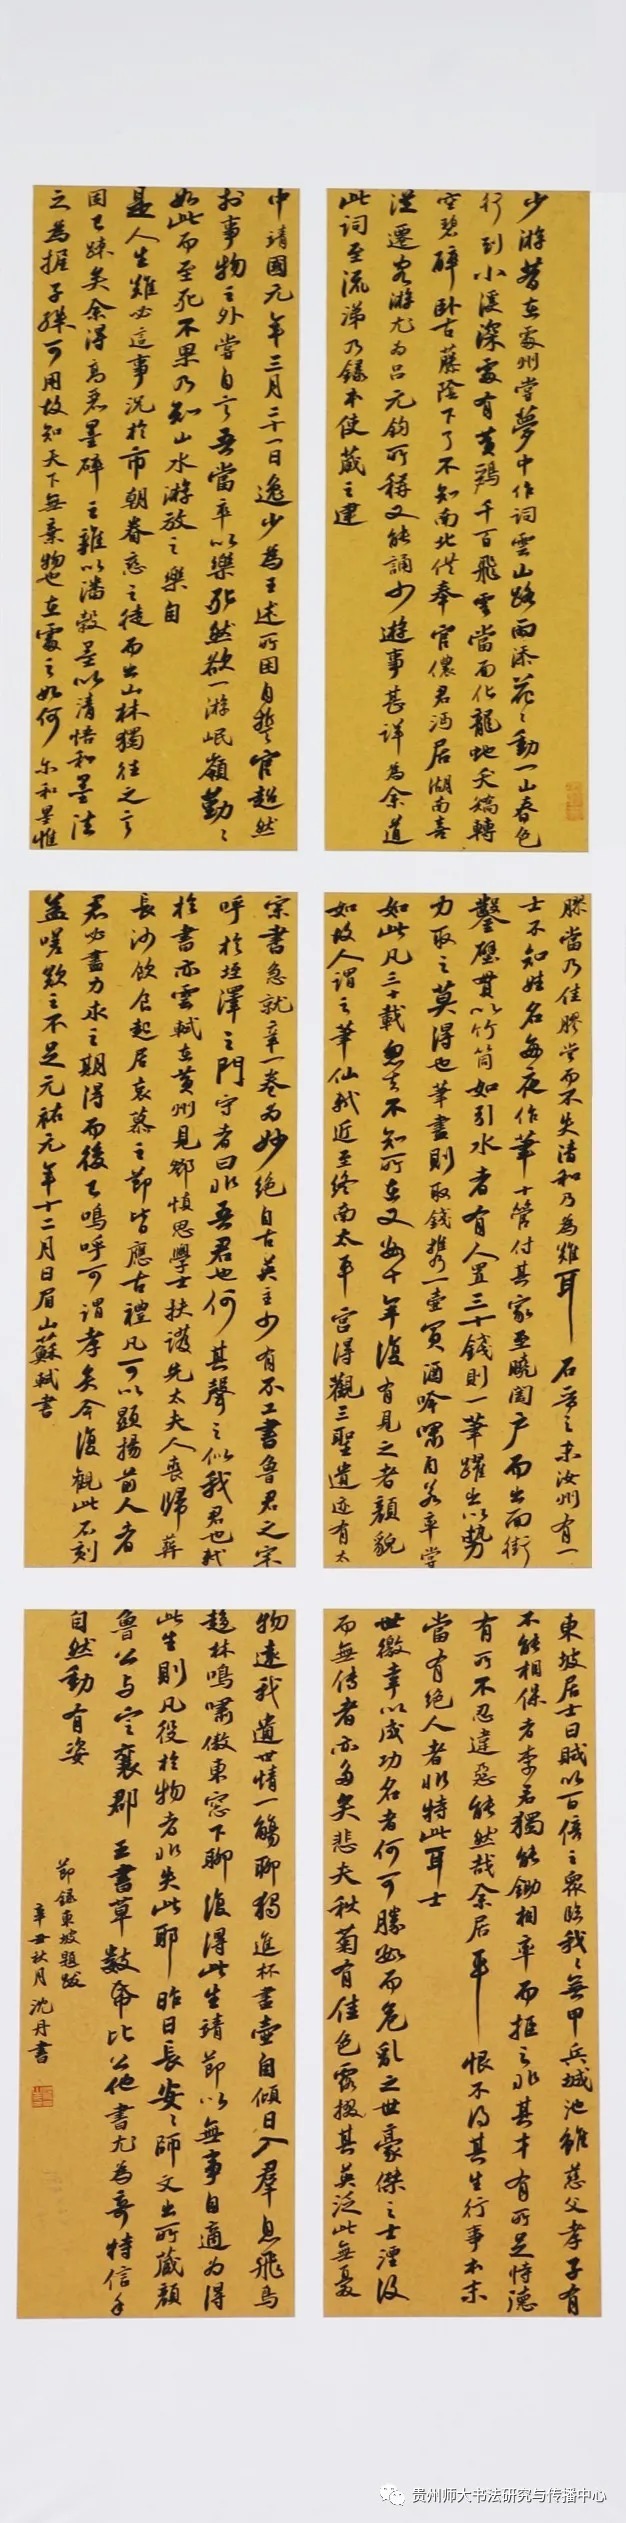 少游昔在處州嘗夢中作詞雲山路雨添花花動一山春色
行到小溪深處有黃鸝千百飛雲當面化龍蛇夭矯轉
空碧醉臥古藤陰下了不知南北供奉官儂君沔居湖南喜
從遷客游尤為呂元鈞所稱又能誦少遊事甚詳為余道
此詞至流涕乃錄本使藏之建
中靖國元年三月二十一日逸少為王述所困自誓去官超然
於事物之外嘗自言吾當卒以樂死然欲一游岷嶺勤勤
如此而至死不果乃知山水游放之樂自
是人生難必這事況於市朝眷戀之徒而出山林獨往之言
固已疎矣余得高君墨碎之雜以潘穀墨以清悟和墨法
之為握子殊可用故知天下無棄物也在處之如何尔和墨惟
膠當乃佳膠當而不失清和乃為難耳石晉之末汝州有一
士不知姓名每夜作筆十管付其家至曉闔戶而出面街
鑿壁貫以竹筒如引水者有人置三十錢則一筆躍出以勢
力取之莫得也筆盡則取錢攜一壺買酒吟嘯自若率嘗
如此凡三十載忽去不知所在又數十年復有見之者顏貌
如故人謂之筆仙軾近至終南太平宮得觀三聖遺迹有太
宗書急就章一卷為妙絕自古英主少有不工書魯君之宋
呼於垤澤之門守者曰非吾君也何其聲之似我君也軾
於書亦雲軾在黃州見鄧慎思學士扶護先太夫人喪歸葬
長沙飲食起居哀慕之節皆應古禮凡可以顯揚前人者
君必盡力求之期得而後已嗚呼可謂孝矣今復觀此石刻
益嗟歎之不足元祐元年十二月日眉山蘇軾書
東坡居士曰賊以百倍之眾臨我我無甲兵城池雖慈父孝子有
不能相保者李君獨能鋤相率而拒之非其才有所足恃德
有所不忍違惡能然哉余居平恨不得其生行事本末
當有絕人者非特此耳士
世徼幸以成功名者何可勝數而危亂之世豪傑之士湮沒
而無傳者亦多矣悲夫秋菊有佳色裛露掇其英泛此無憂
物遠我遺世情一觴聊獨進杯盡壺自傾日入群息飛鳥
趨林鳴嘯傲東窓下聊復得此生靖節以無事自適為得
此生則凡役於物者非失此耶昨日長安安師文出所藏顏
魯公與定襄郡王書草數帋比公他書尤為奇特信手
自然動有姿
節錄東坡題跋
辛丑秋月沈丹書
贵州师大书法研究与传播中心